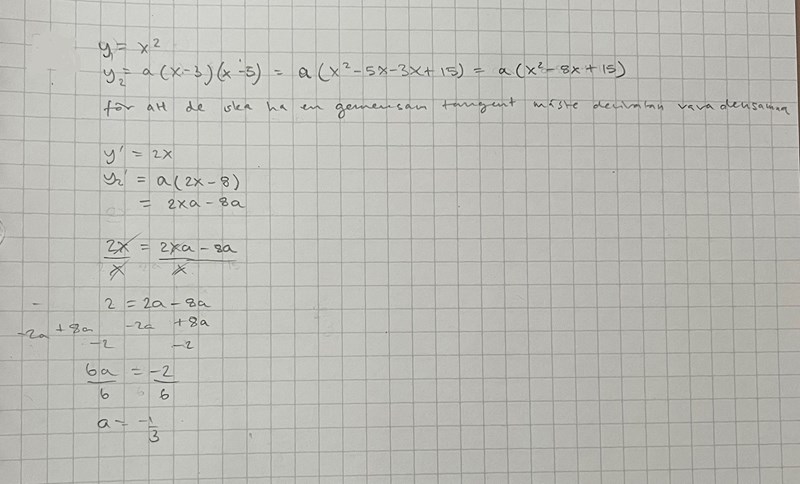 y₁ = x²
y₂ = a(x-3)(x-5) = a(x²-5x-3x+15) = a(x²-8x+15)
för att de ska ha en gemensam tangent måste derivatan vara densamma
y' = 2x
y₂' = a(2x-8)
= 2xa - 8a
2x/x = 2xa - 8a/x
2 = 2a - 8a
-2a +8a -2a +8a
-2 -2
6a/6 = -2/6
a = -1/3